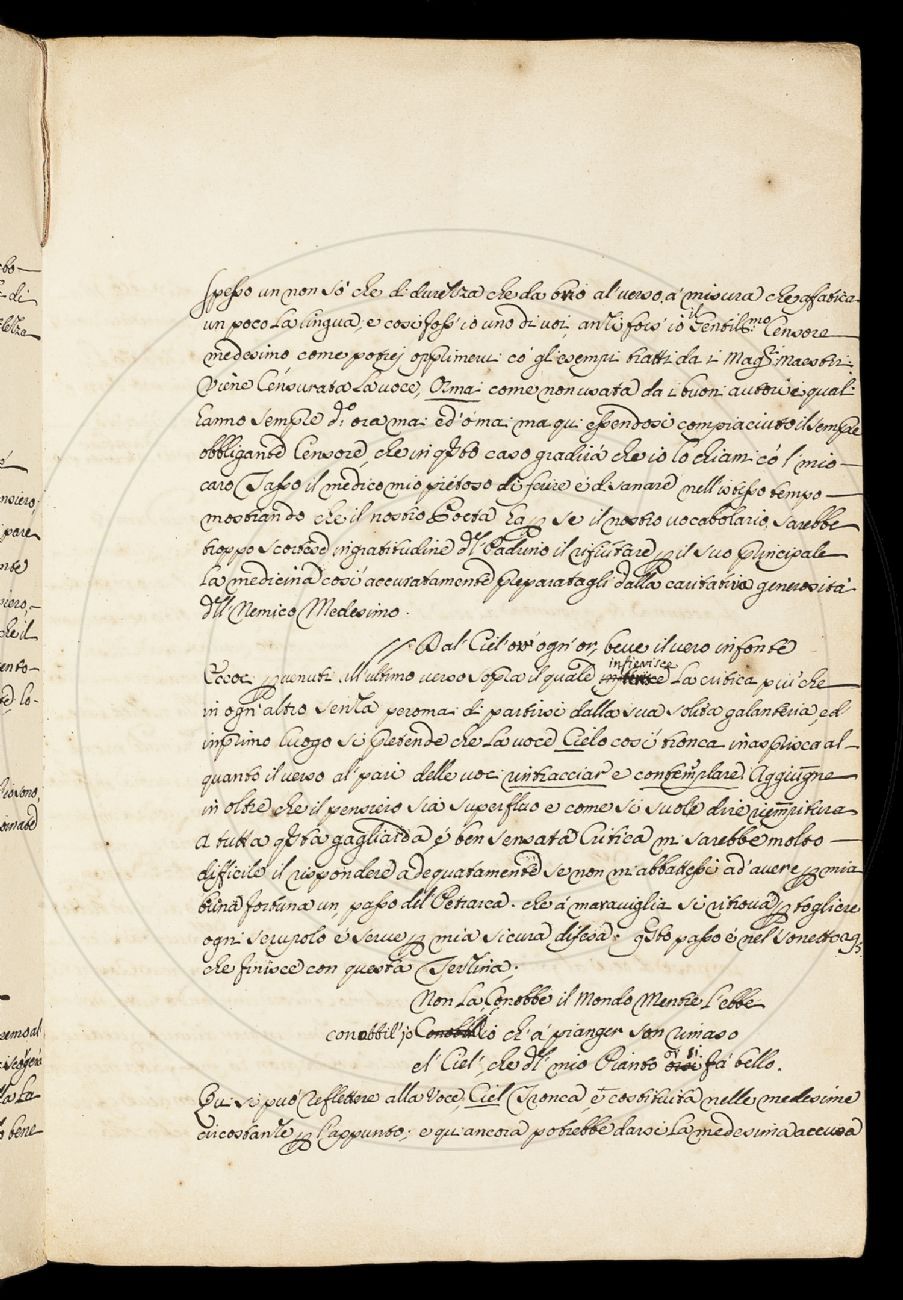 spesso un non só che di durezza che da brio al verso, á misura che afatica
un poco la lingua, e cosi foss'io uno di voi, anzi foss'io il Gentilis.mo Censore
medesimo come potrej opprimervi có gl'esempi tratti da i Mag.ri Maestri.
Viene Censurata la voce, Orma: come non usata da i buoni autori i quali
hanno sempre d.o ora mai ed'ó mai. ma qui essendosi compiaciuto il sempre
obbligante Censore, che in q.sto caso gradirá che io lo chiami có l'mio
caro Tasso il medico mio pietoso di ferire e di sanare nell'istesso tempo
mostrando che il nostro Poeta ha p se il nostro vocabolario, sarebbe
troppo scortese ingratitudine d.ll'Padrino il rifiutare p il suo principale
la medicina cosi accuratamente preparatagli dalla caritativa generositá
d.ll Nemico Medesimo.
Dal' Ciel' ov' ogn'or, beve il vero in fonte
Eccoci pvenuti all'ultimo verso sopra il quale infierisce la critica piu che
in ogn'altro senza peró mai di partirsi dalla sua solita galanteria, ed
in primo luogo si pretende che la voce Cielo cosi tronca inasprisca al-
quanto il verso al' pari delle voci rintracciar' e contemplare. Aggiugne
in oltre che il pensiero sia superfluo e come si suole dire riempitura
A tutta q.sta gagliarda é ben sensata Critica mi sarebbe molto
difficile il rispondere adeguatamente se non mi abbattessi ad'avere p mia
buna fortuna un, passo del Petrarca. che á maraviglia si ritrova p togliere
ogni scrupolo é serve p mia sicura difesa: q.sto passo é nel sonetto 293.
che finisce con questa Terzina.
Non la Conobbe il Mondo Mentre l'ebbe
conobbil'jo ch'á pianger son rimaso
el' Ciel', che d.ll' mio Pianto or si fá bello.
Qui si puó reflettere alla voce, Ciel Tronca, é costituita nelle medesime
circostanze p l'appunto; e qui ancora potrebbe darsi la medesima accusa